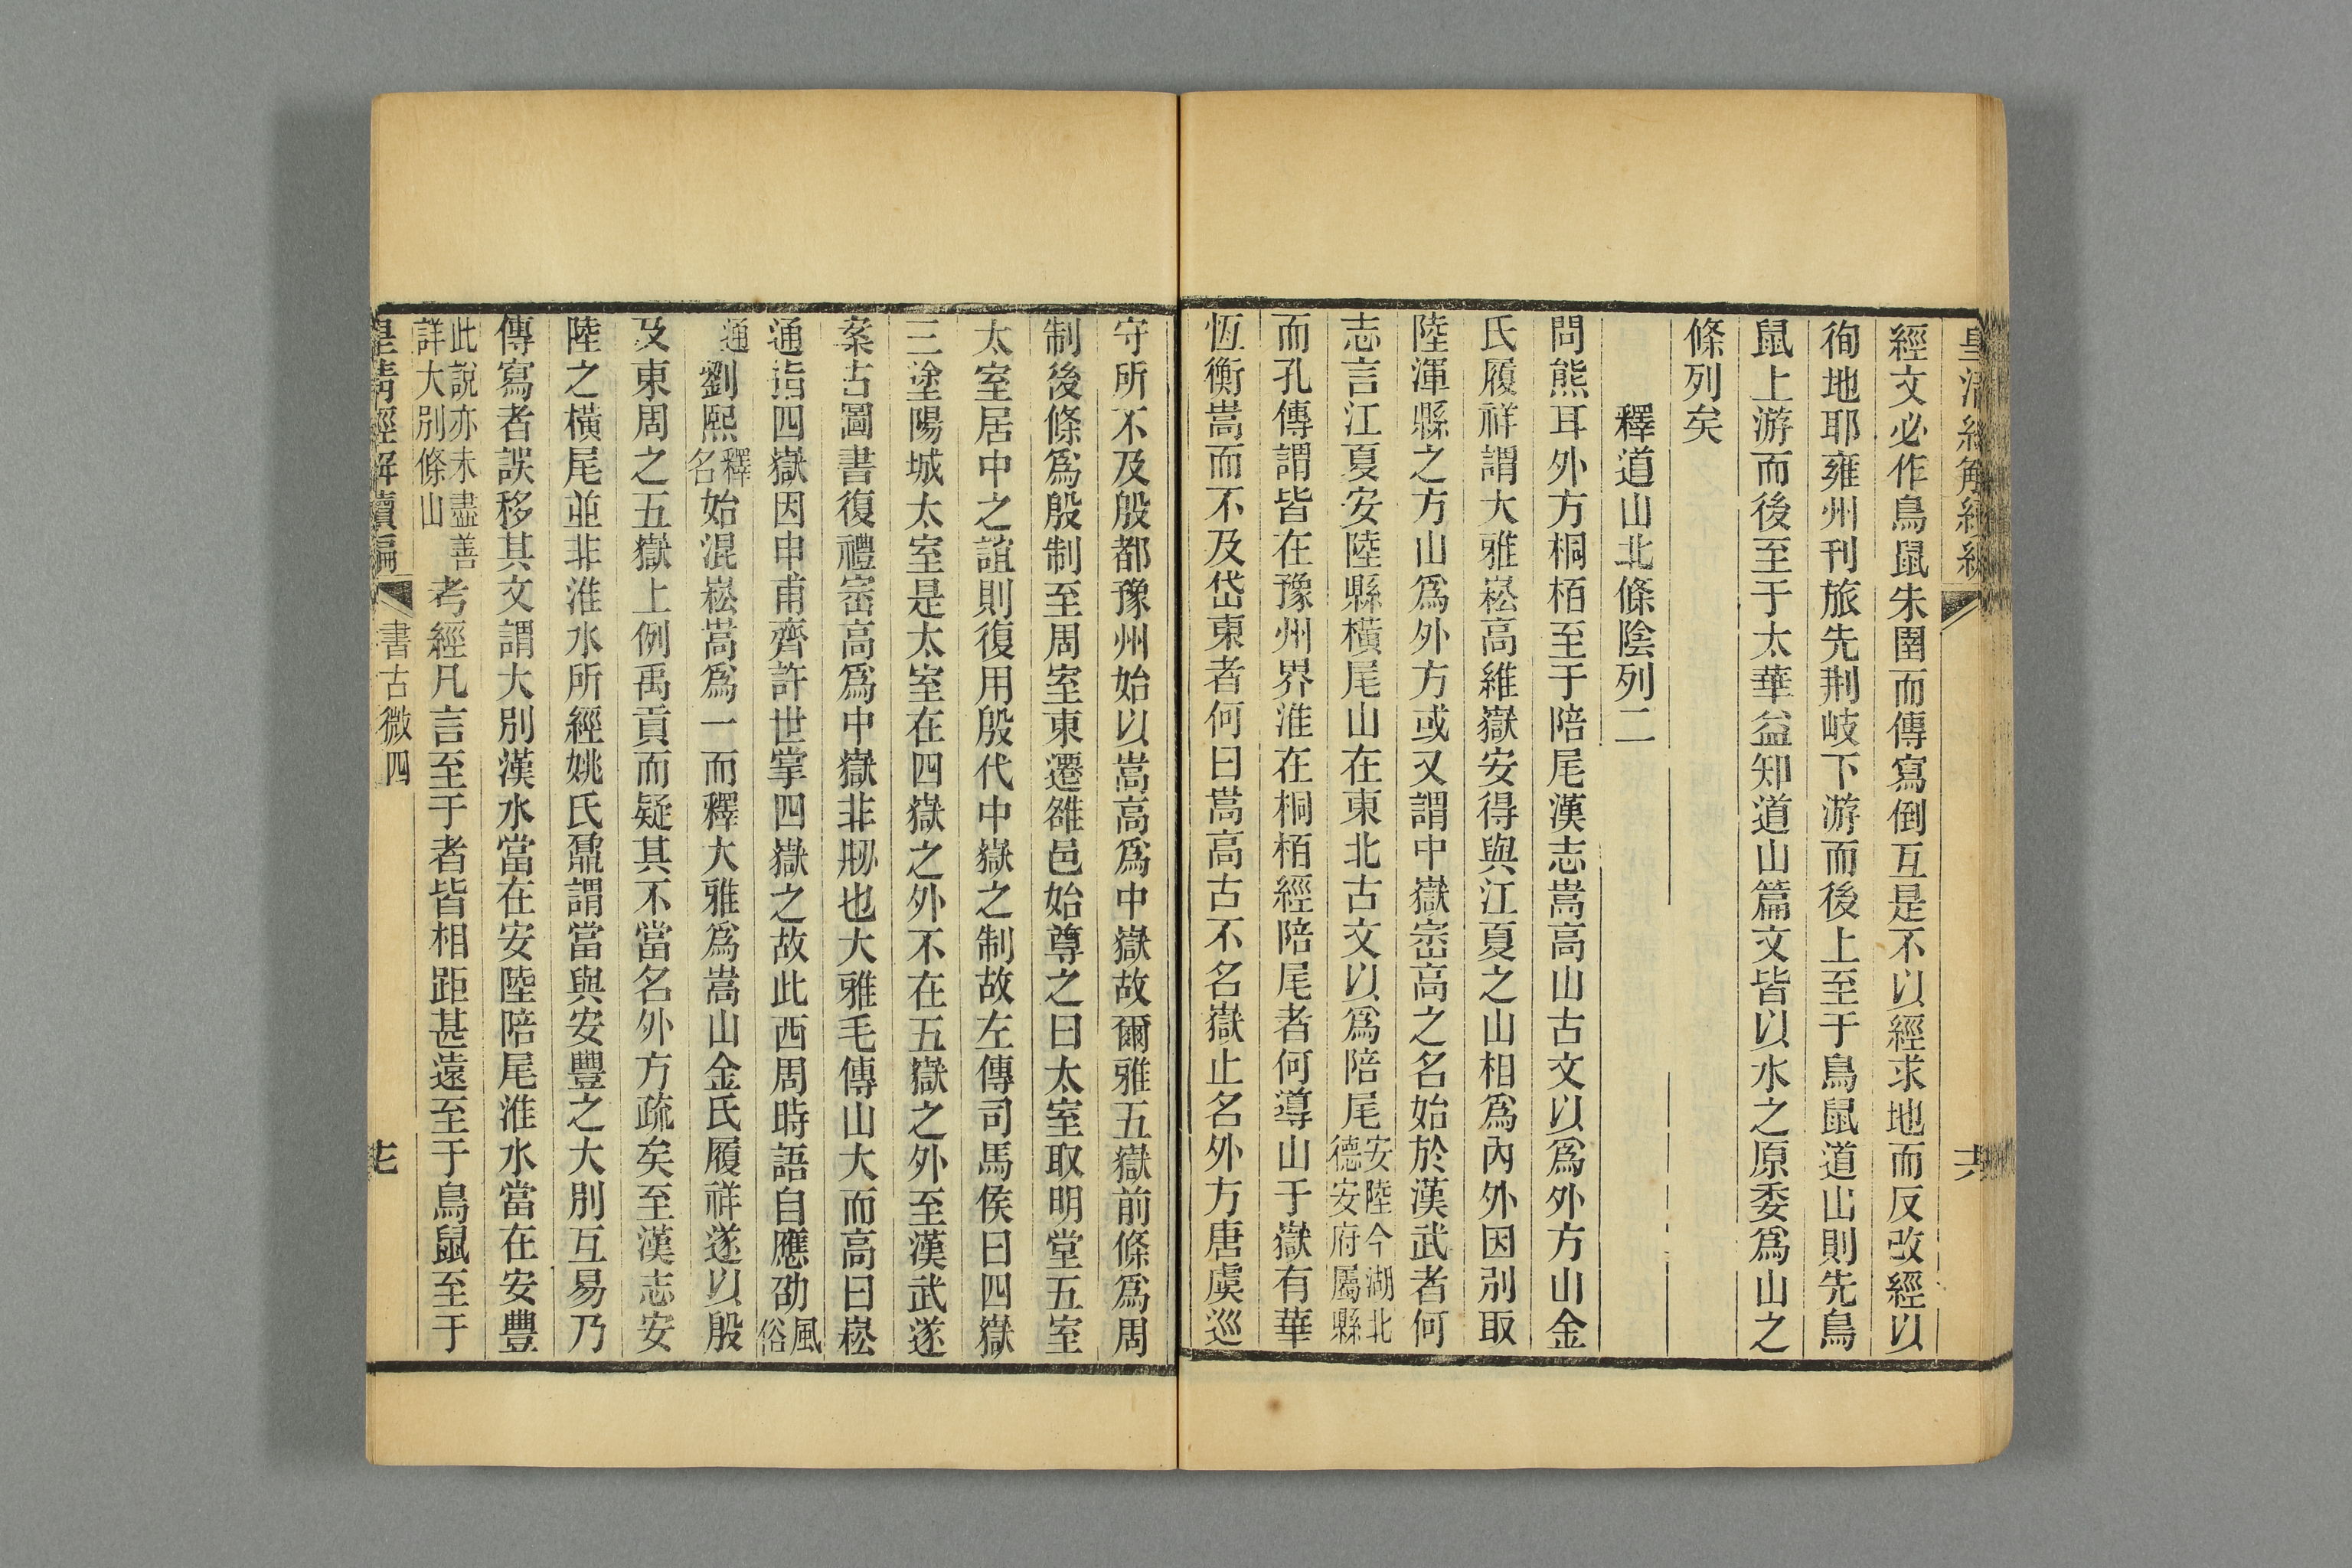 經文必作鳥鼠朱圉而傳寫倒互是不以經求地而反改經以
徇地耶雍州刊旅先荆岐下游而後上至于鳥鼠道山則先鳥
鼠上游而後至于太華益知道山篇文皆以水之原委爲山之
條列矣
釋道山北條陰列二
問熊耳外方桐栢至于陪尾漢志嵩高山古文以爲外方山金
氏履祥謂大雅崧高維嶽安得與江夏之山相爲內外因別取
陸渾縣之方山爲外方或又謂中嶽崈高之名始於漢武者何
志言江夏安陸縣橫尾山在東北古文以爲陪尾安陸今湖北德安府屬縣
而孔傳謂皆在豫州界淮在桐栢經陪尾者何導山于嶽有華
恆衡嵩而不及岱東者何曰嵩高古不名嶽止名外方唐虞巡
守所不及殷都豫州始以嵩高爲中嶽故爾雅五嶽前條爲周
制後條爲殷制至周室東遷雒邑始尊之曰太室取明堂五室
太室居中之誼則復用殷代中嶽之制故左傳司馬侯曰四嶽
三塗陽城太室是太室在四嶽之外不在五嶽之外至漢武遂
案古圖書復禮崈高爲中嶽非刱也大雅毛傳山大而高曰崧
通詣四嶽因申甫齊許世掌四嶽之故此西周時語自應劭風俗
通劉熙釋名始混崧嵩爲一而釋大雅爲嵩山金氏履祥遂以殷
及東周之五嶽上例禹貢而疑其不當名外方疏矣至漢志安
陸之橫尾並非淮水所經姚氏鼐謂當與安豐之大別互易乃
傳寫者誤移其文謂大別漢水當在安陸陪尾淮水當在安豐
此說亦未盡善詳大別條山考經凡言至于者皆相距甚遠至于鳥鼠至于
皇清經解續編 書古微四